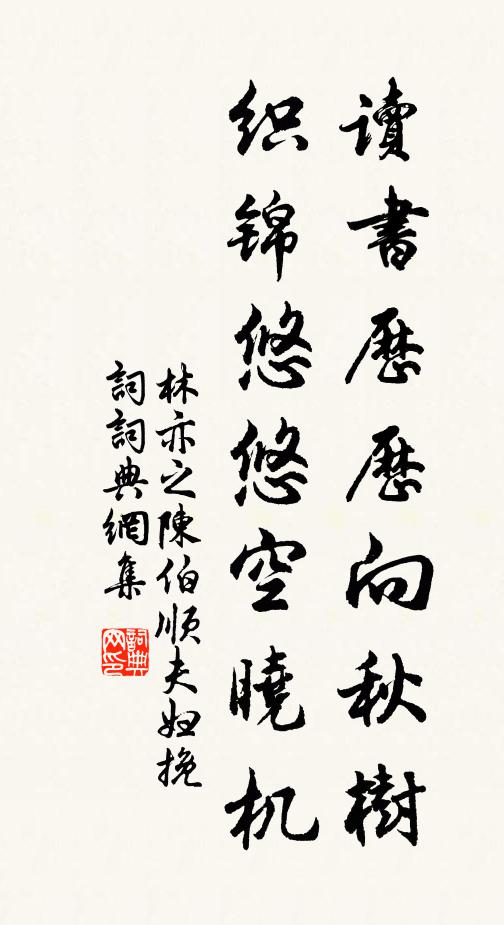 讀書歷歷向秋樹
织锦悠悠空曉机
林亦之陳伯順夫妞挽
詞詞典網集
詞典网印